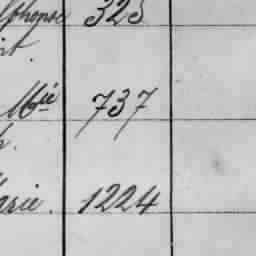 lphonse 325
nt.
Mie 737
h.
arie. 1224